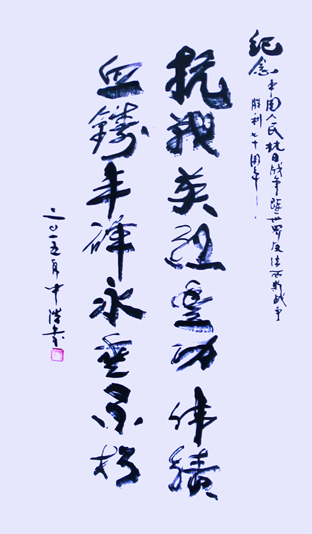 纪念中国人民抗日战争暨世界反法西斯战争
胜利七十周年
抗戰英雄豐功伟績
血鑄丰碑永垂不朽
二〇一五年中浩书